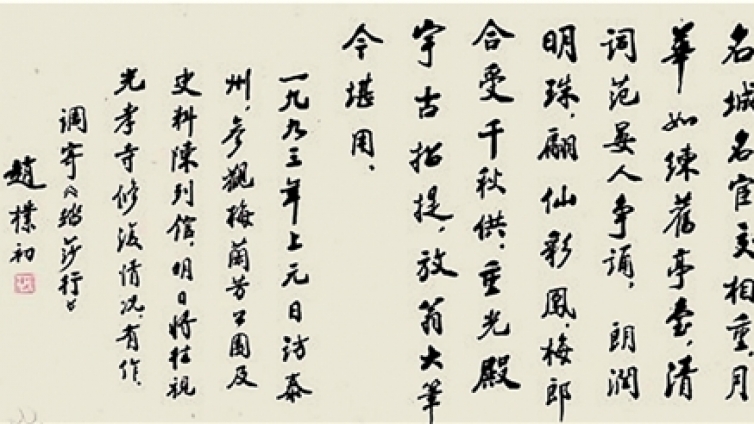 名城名宦交相重。月
華如練舊亭臺，清
词范晏人争诵，朗润
明珠，翩仙彩凤，梅郎
合受千秋供。重光殿
宇古招提，放翁大筆
今堪用。
一九九三年上元日访泰
州，参觀梅蘭芳公園及
史料陳列馆，明日将往視
光孝寺修復情况，有作，
调寄《踏莎行》
趙樸初